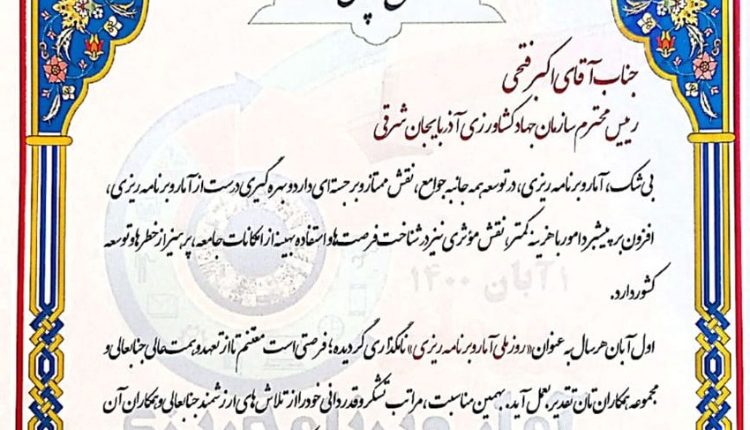 جناب آقای اکبر فتحی
رییس محترم سازمان جهاد کشاورزی آذربایجان شرقی
بی شک، آمار و برنامه ریزی، در توسعه همه جانبه جوامع، نقش ممتاز و برجسته ای دارد و بهره گیری درست از آمار و برنامه ریزی،
افزون بر پیشبرد امور با هزینه کمتر، نقش مؤثری نیز در شناخت فرصت ها و استفاده بهینه از امکانات جامعه، پرهیز از خطرها و توسعه
کشور دارد.
۱ آبان ۱۴۰۰
اول آبان هر سال به عنوان «روز ملی آمار و برنامه ریزی» نامگذاری گردیده؛ فرصتی است مغتنم تا از تعهد و همت عالی جنابعالی و
مجموعه همکاران تان تقدیر بعمل آید. بهمین مناسبت، مراتب تشکر و قدردانی خود را از تلاش های ارزشمند جنابعالی و همکاران آن
آمار و برنامه ریزی